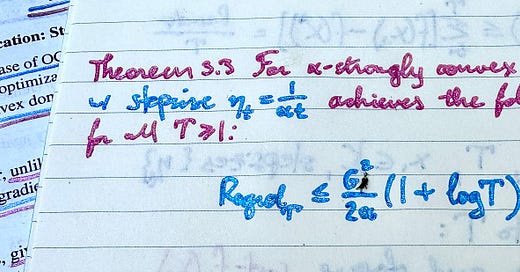 cation: St
ase of OC
optimiza
vex don
, unlik
gradie
, giv
Theorem 3.3 For α-strongly convex
w/ stepsize η_t = 1/αt achieves the fol
for all T ≥ 1:
Regret_T ≤ G²/2α (1 + log T)